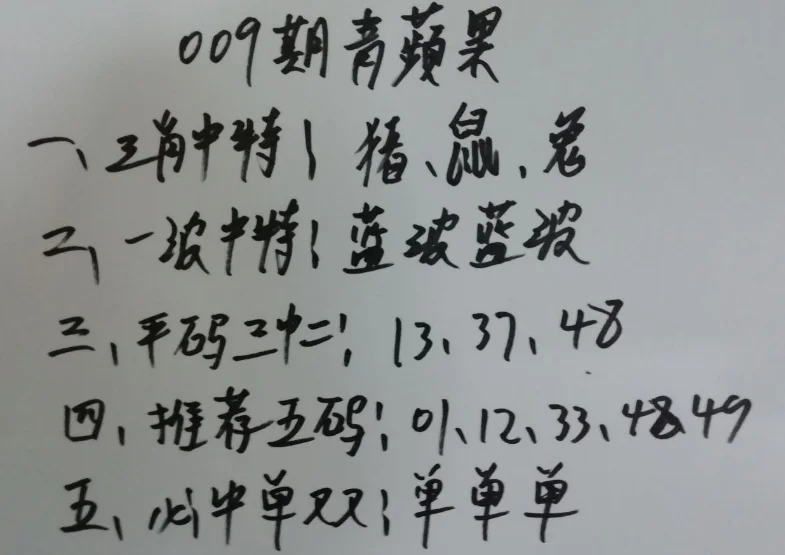 009期青蘋果
一、三肖中特：猪、鼠、兔
二、一波中特：蓝波蓝波
三、平码三中二：13、37、48
四、推荐五码：01、12、33、48、49
五、必中单双：单单单